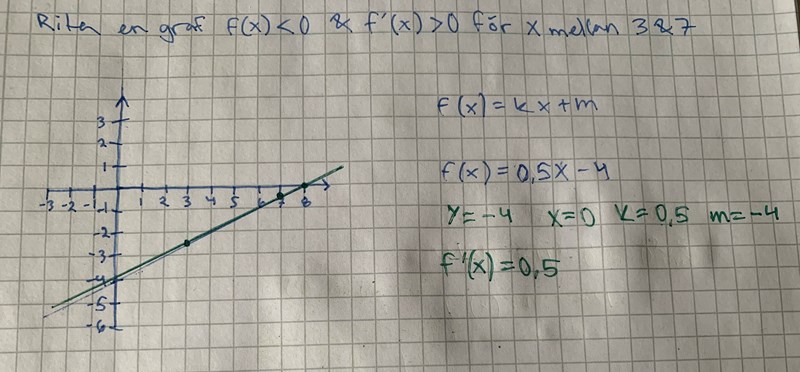 Rita en graf f(x)<0 & f'(x)>0 för x mellan 3 & 7
f(x) = kx+m
3
2
1
f(x) = 0,5x - 4
-3 -2 -1 1 2 3 4 5 6 7 8
-1
y = -4 x=0 k=0,5 m=-4
-2
-3
f'(x) = 0,5
-4
-5
-6